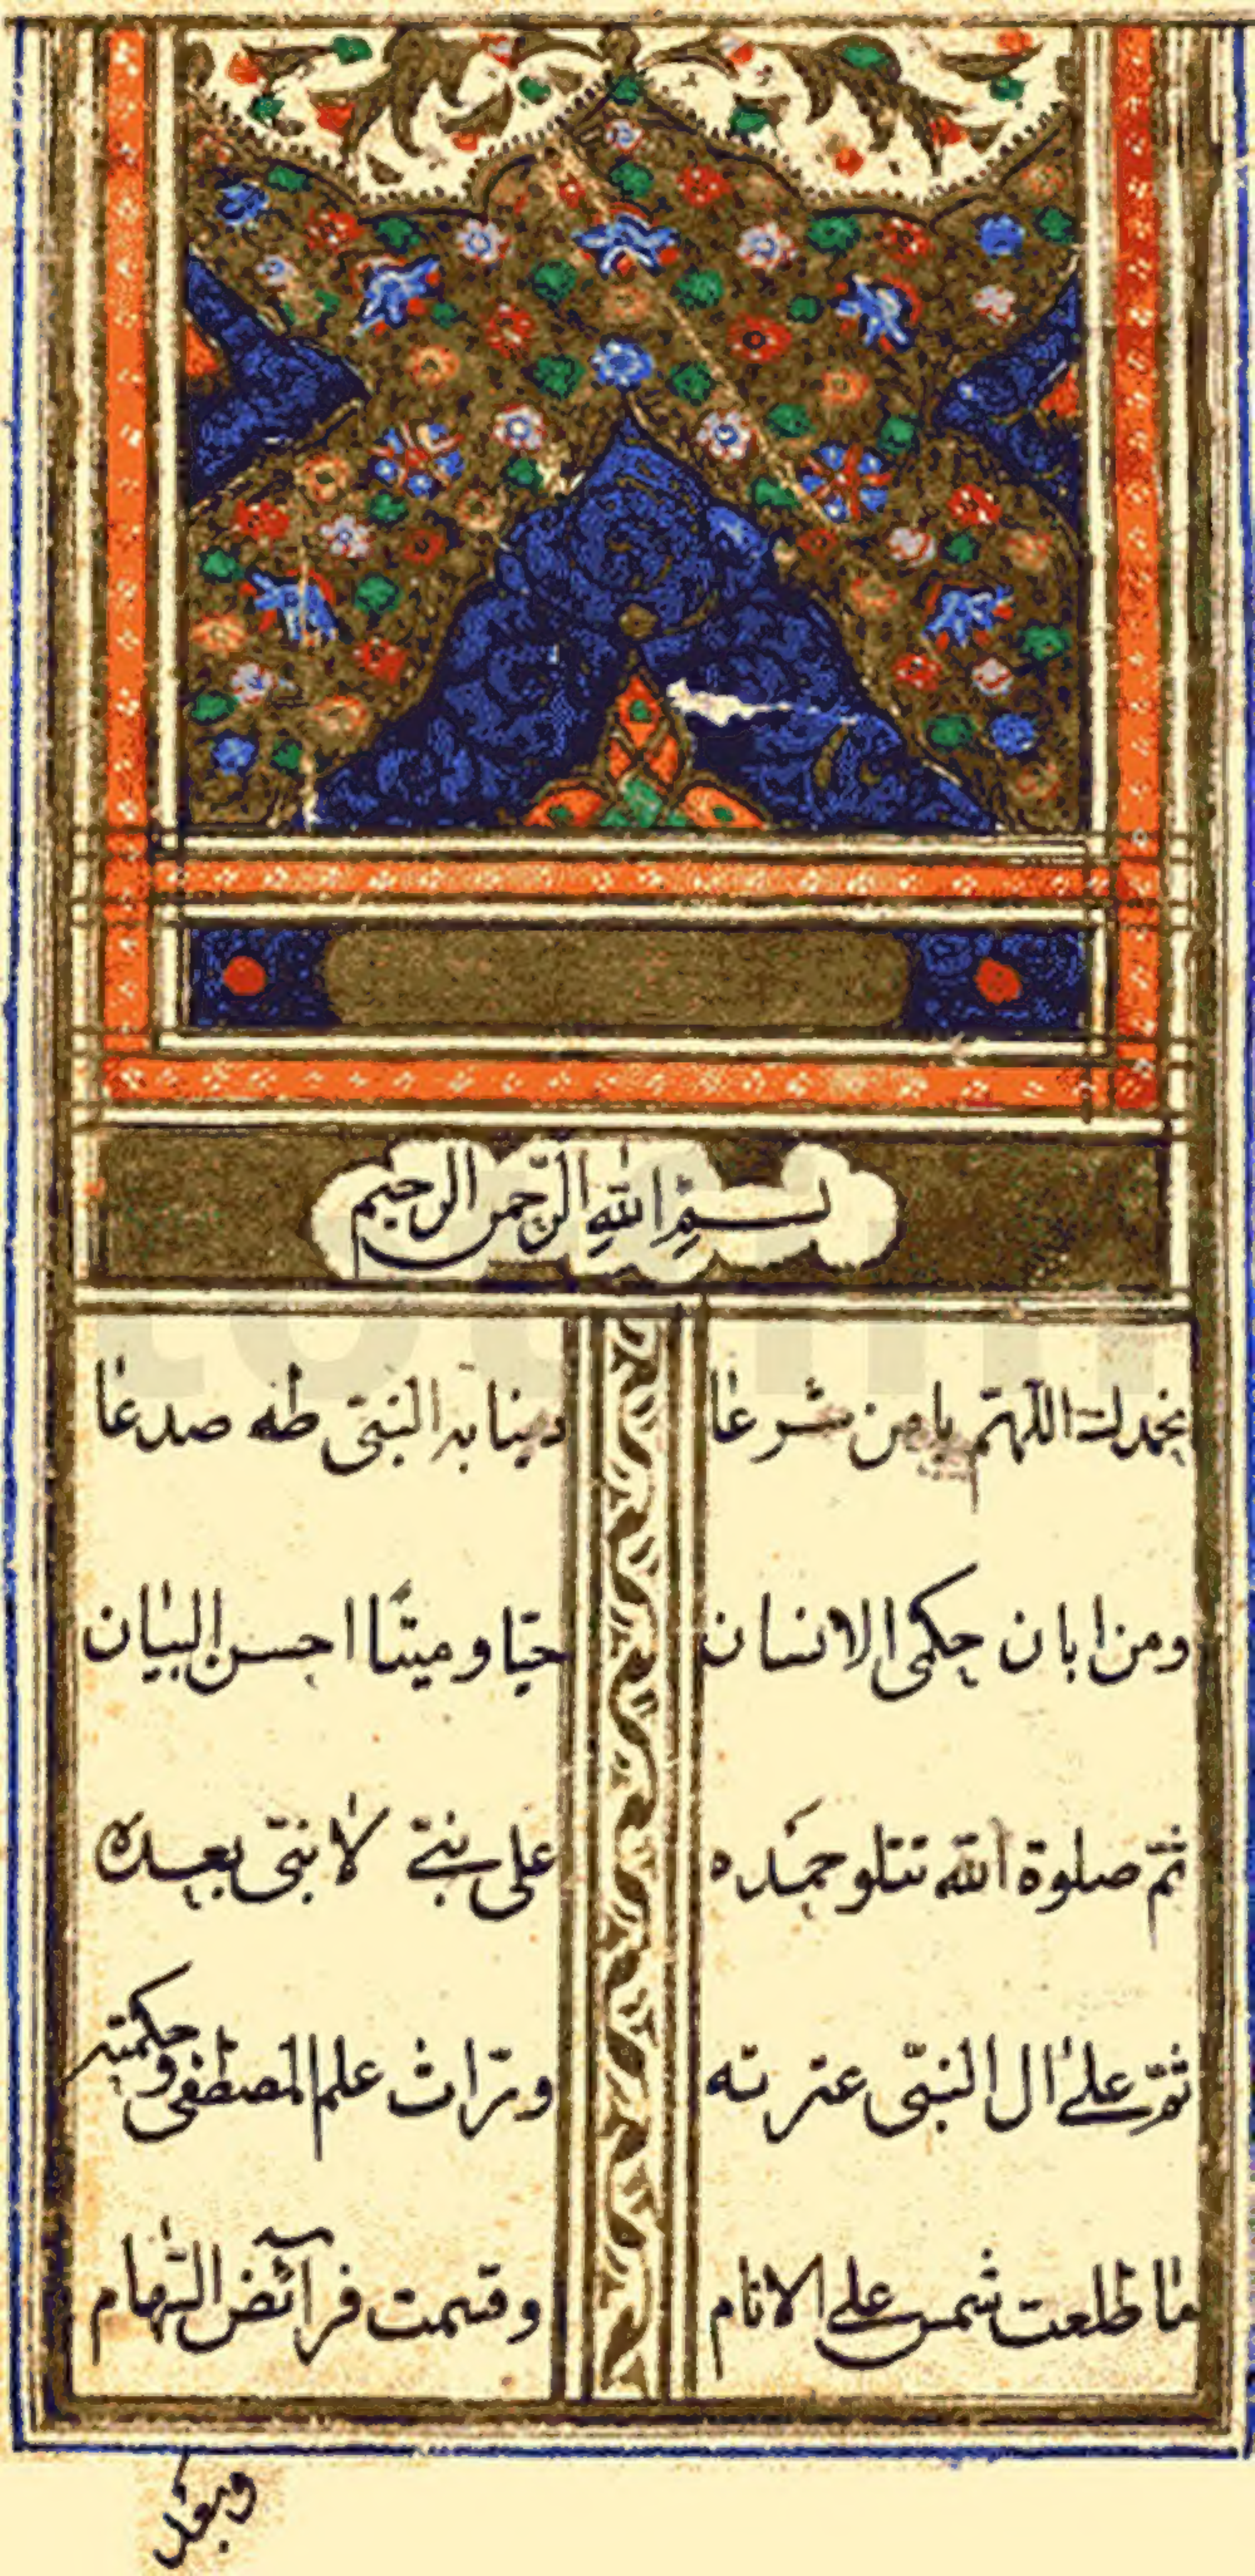 بسم الله الرحمن الرحيم
نحمدك اللهم يا من شرعا دينا به النبي طه صدعا
ومن ابان حكمى الانسان حيا وميتا احسن البيان
ثم صلوة الله تتلو حمده على نبي لا نبي بعده
ثم على ال النبي عترته وراث علم المصطفى وحكمته
ما طلعت شمس على الانام وقسمت فرآئض السهام
وبعد